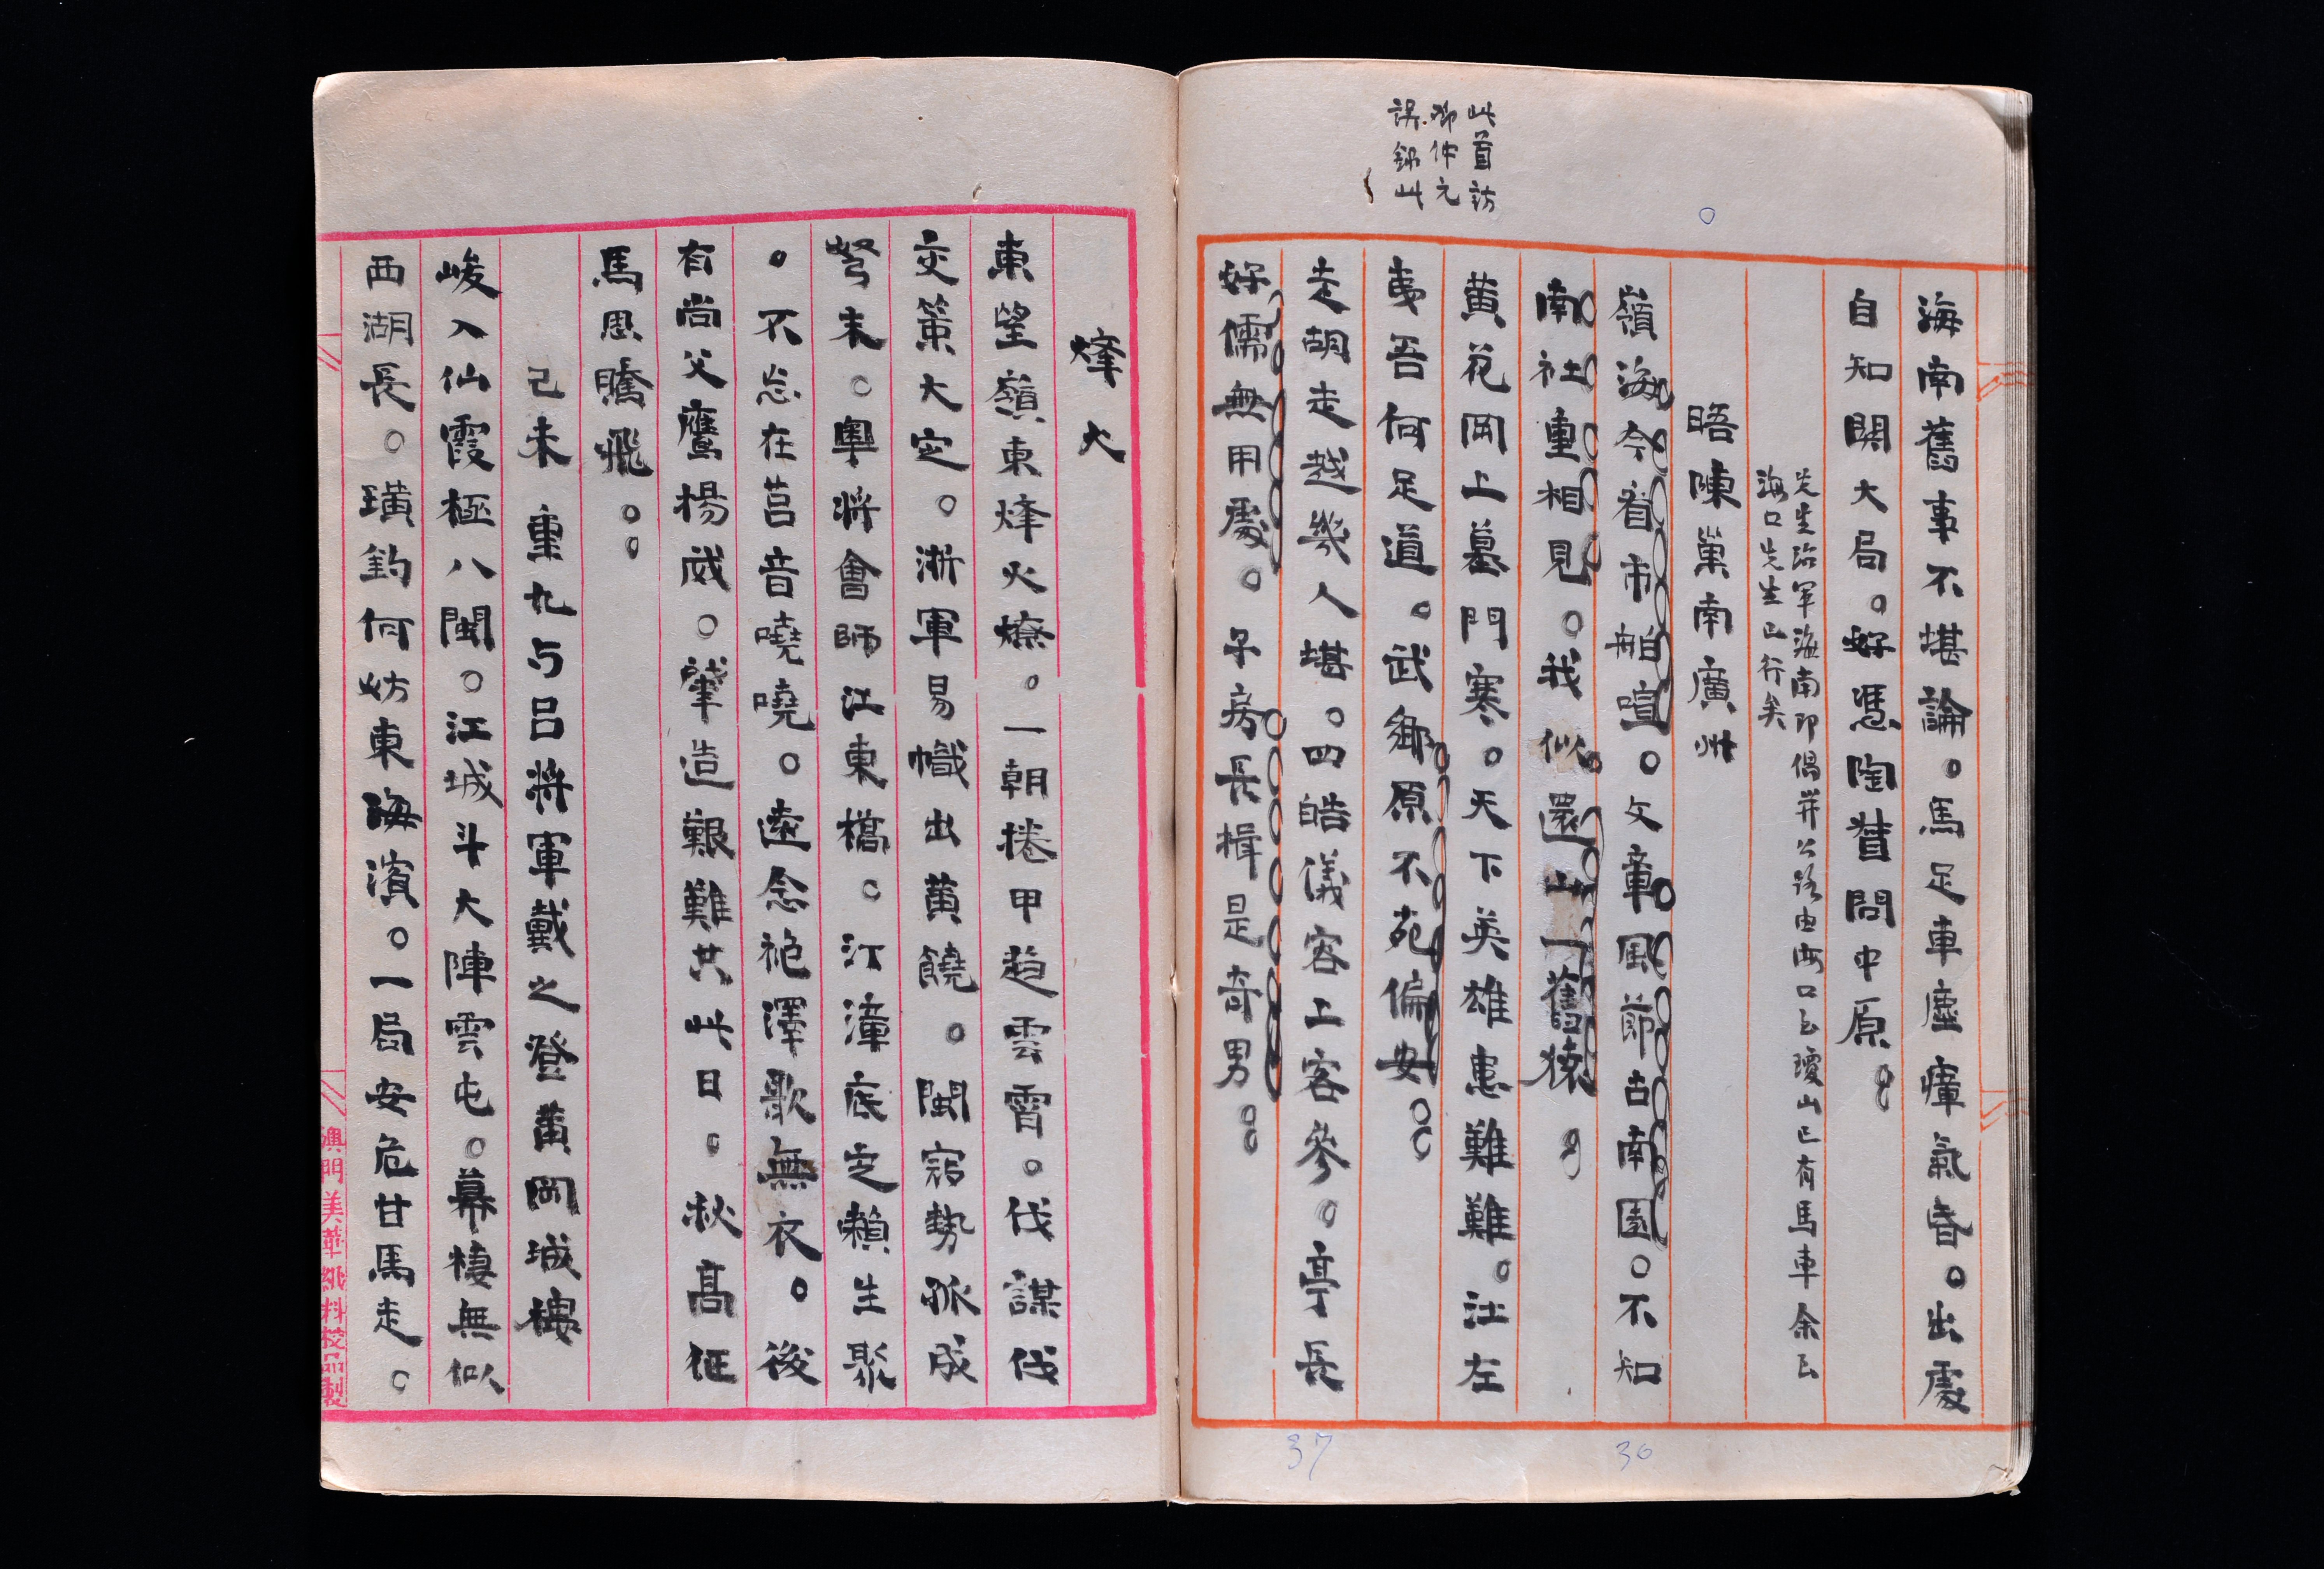 此首訪
鄒仲元
誤錄此
海南舊事不堪論。馬足車塵瘴氣昏。出處
自知關大局。好憑陶督問中原。。
先生治軍海南即倡築公路由海口至瓊山已有馬車余至
海口先生已行矣
晤陳巢南廣州
嶺海今看市舶喧。文章風節古南園。不知
南社重相見。我似還山一舊猿。
黃花岡上墓門寒。天下英雄患難難。江左
夷吾何足道。武鄉原不苑偏安。。
走胡走越幾人堪。四皓儀容上客參。亭長
好儒無用處。子房長揖是奇男。。
37
36
烽火
東望嶺東烽火燎。一朝捲甲趋雲霄。伐謀伐
交策大定。浙軍易幟出黃饒。閩窮勢孤成
弩末。粵將會師江東橋。汀漳底定賴生聚
。不忘在莒音嘵嘵。遠念袍澤歌無衣。後
有尚父鷹揚威。肇造艱難共此日。秋高征
馬思騰飛。。
己未重九与呂將軍戴之登黃岡城樓
峻入仙霞極八閩。江城斗大陣雲屯。幕棲無似
西湖長。璜釣何妨東海濱。一局安危甘馬走。
澳門美華紙料校品製